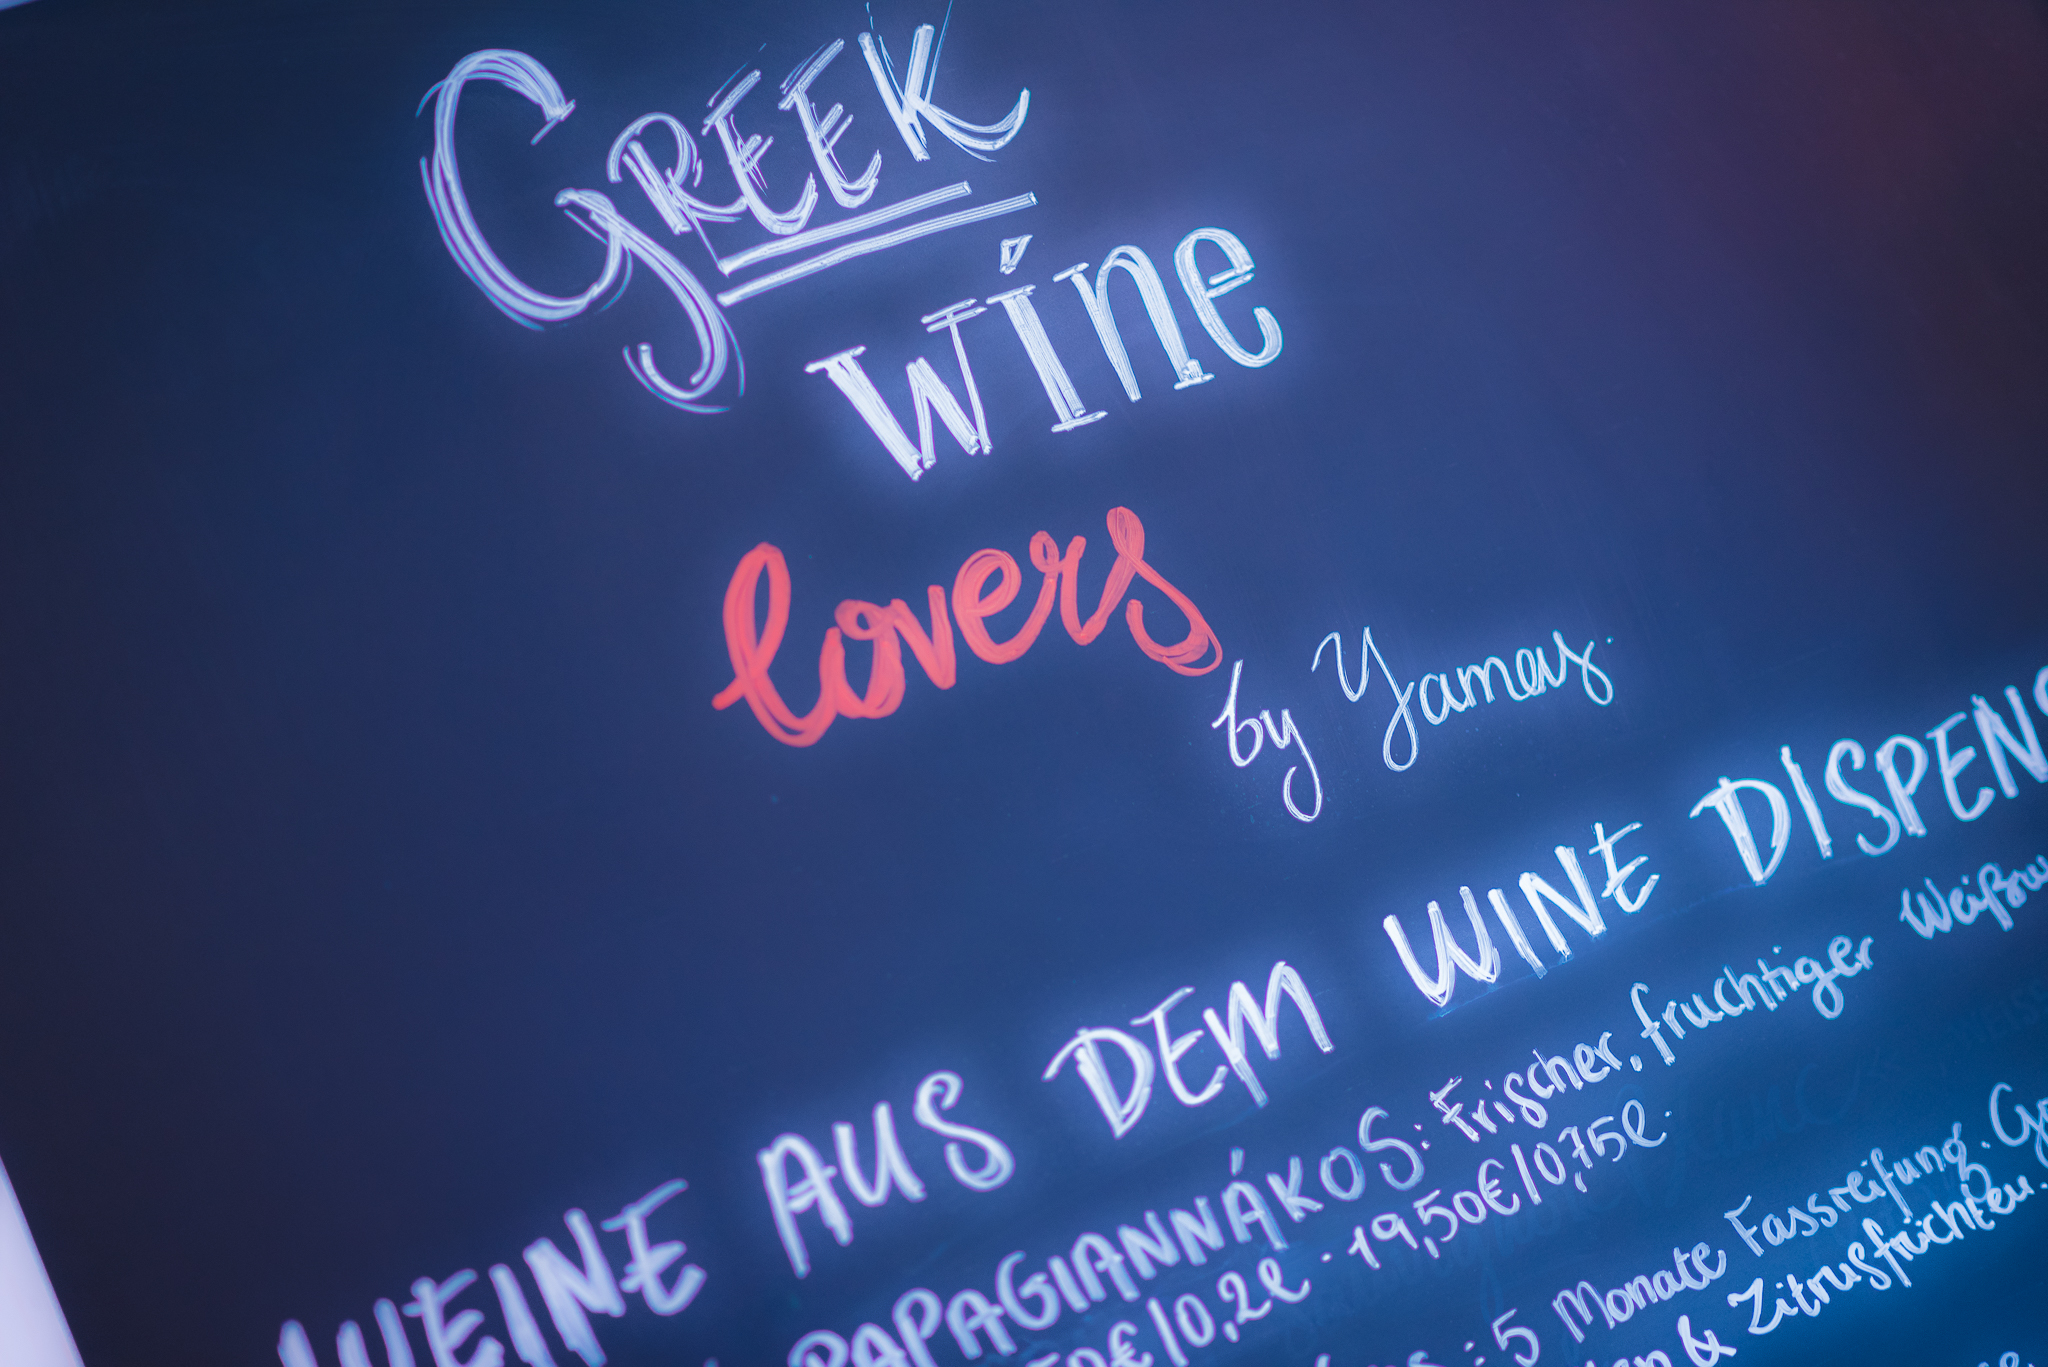 GREEK
wine
lovers
by Yamas.
WEINE AUS DEM WINE
PAPAGIANNÁKOS: Frischer, fruchtiger
0,2l · 19,50€/0,75l.
: 5 Monate Fassreifung.
& Zitrusfrüchten.